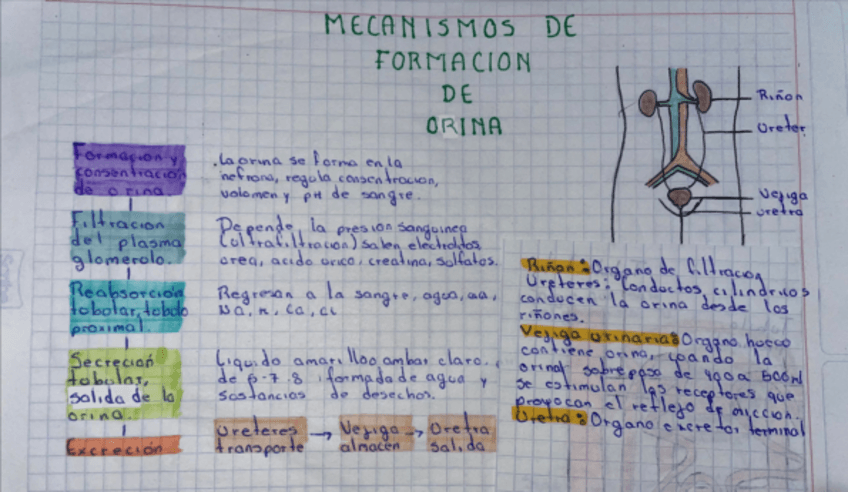 MECANISMOS DE
FORMACION
DE
ORINA
Formacion y
consentración
de orina
.La orina se forma en la
nefrona, regula concentracion,
volumen y pH de sangre.
Filtracion
del plasma
glomerolo.
Depende la presion sanguinea
(ultrafiltracion) salen electrolitos
urea, acido urico, creatina, sulfatos.
Reabsorción
tobolar, tobolo
proximal.
Regresan a la sangre, agua, aa,
Na, K, Ca, CL
Secreción
tobolar,
salida de la
orina.
Liquido amarillo o ambar claro,
de formada de agua y
sustancias de desechos.
Excreción
Ureteres → Vejiga → Uretra
transporte almacen salida
Riñon
Ureter
Vejiga
uretra
Riñon: Organo de filtracion
Ureteres: Conductos cilindricos
conducen la orina desde los
riñones.
Vejiga urinaria: Organo hueco
contiene orina, cuando la
orina sobrepasa de 400 a 500ml
se estimulan los receptores que
provocan el reflejo de miccion.
Uretra: Organo excretor terminal